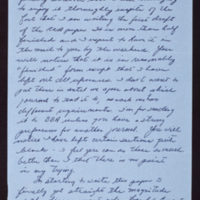 to enjoy it thoroughly inspite of the
I am writing the first draft
of the paper. It is more than half
finished and I expect to have it in
the mail to you by the weekend. You
will notice that it is in reasonably
"finished" form except that I have
left out all references. I don't want to
put them in until we agree about which
journal to send it to, since
different requirements. I'm
to BBA unless you have a strong
preference for another journal. You will
notice I have left certain sections quite
blank. I feel you can do these so much
better than I that there is no point
in my trying.
In starting to write this paper I
finally got straight the magnitude